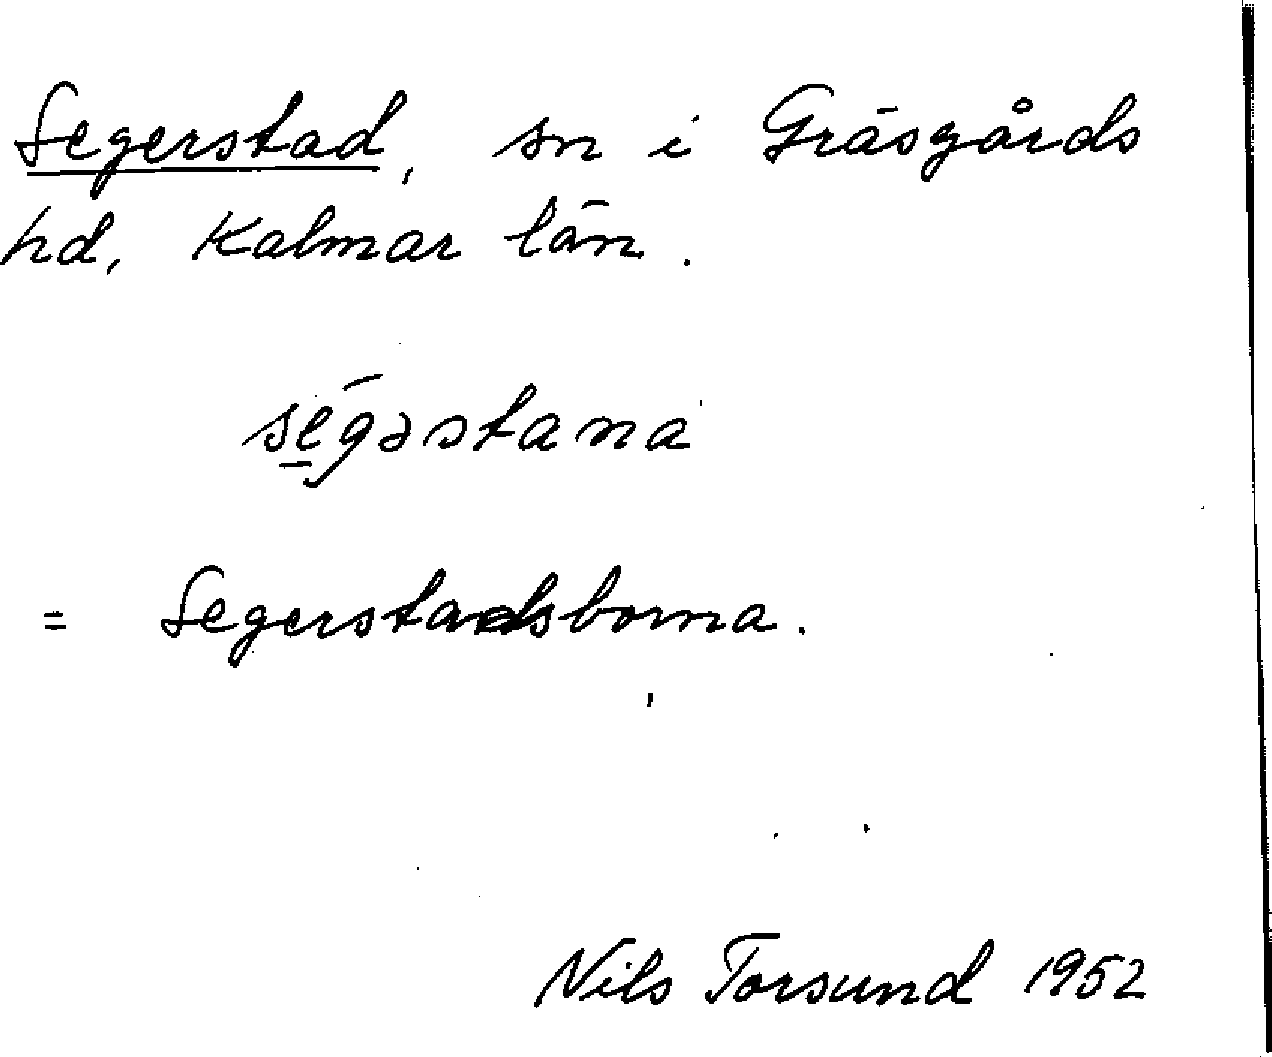 Segerstad, sn i Gräsgårds
hd, Kalmar län.
se̲gəstana
= Segerstadsborna.
Nils Torsund 1952